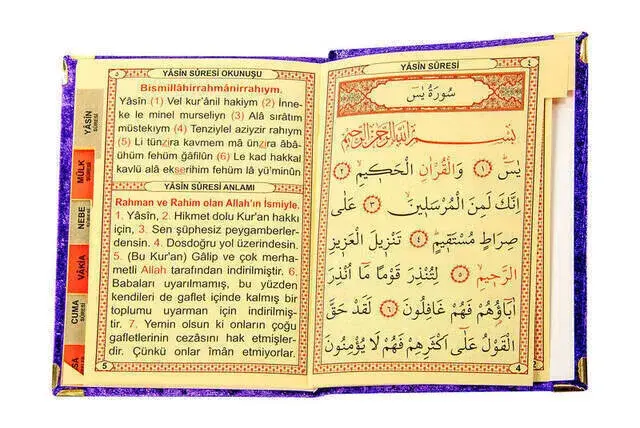 YÂSİN SÛRESİ
٤
سُورَةُ يٰسٓ
بِسْمِ اللّٰهِ الرَّحْمٰنِ الرَّحِيمِ
يٰسٓ ﴿١﴾ وَالْقُرْاٰنِ الْحَكِيمِ ﴿٢﴾
اِنَّكَ لَمِنَ الْمُرْسَلِينَ ﴿٣﴾ عَلٰى
صِرَاطٍ مُسْتَقِيمٍ ﴿٤﴾ تَنْزِيلَ الْعَزِيزِ
الرَّحِيمِ ﴿٥﴾ لِتُنْذِرَ قَوْمًا مَٓا اُنْذِرَ
اٰبَٓاؤُ۬هُمْ فَهُمْ غَافِلُونَ ﴿٦﴾ لَقَدْ حَقَّ
الْقَوْلُ عَلٰٓى اَكْثَرِهِمْ فَهُمْ لَا يُؤْمِنُونَ
4
2
٥
YÂSİN SÛRESİ OKUNUŞU
Bismillâhirrahmânirrahıym.
Yâsîn (1) Vel kur'ânil hakiym (2) İnne-
ke le minel murseliyn (3) Alâ sırâtım
müstekıym (4) Tenziylel aziyzir rahıym
(5) Li tünzira kavmem mâ ünzira âbâ-
ühüm fehüm ğâfilûn (6) Le kad hakkal
kavlü alâ ekserihim fehüm lâ yü'minûn
YÂSİN SÛRESİ ANLAMI
Rahman ve Rahim olan Allah'ın İsmiyle.
1. Yâsîn, 2. Hikmet dolu Kur'an hakkı
için, 3. Sen şüphesiz peygamberler-
densin. 4. Dosdoğru yol üzerindesin.
5. (Bu Kur'an) Gâlip ve çok merha-
metli Allah tarafından indirilmiştir. 6.
Babaları uyarılmamış, bu yüzden
kendileri de gaflet içinde kalmış bir
toplumu uyarman için indirilmiş-
tir. 7. Yemin olsun ki onların çoğu
gafletlerinin cezasını hak etmişler-
dir. Çünkü onlar îman etmiyorlar.
5
YÂSİN
SÛRESİ
MÜLK
SÛRESİ
NEBE
SÛRESİ
VÂKIA
SÛRESİ
CUMA
SÛRESİ